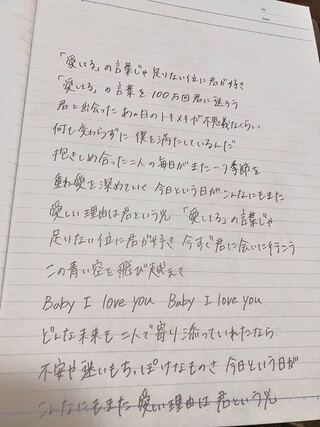 「愛してる」の言葉じゃ 足りない位に君が好き
「愛してる」の言葉を 100万回君に送ろう
君と出会った あの日のトキメキが不思議なくらい
何も変わらずに 僕を満たしているんだ
抱きしめ合った二人の毎日がまた一つ季節を
重ね愛を深めていく 今日という日がこんなにもまた
愛しい理由は君という光 「愛してる」の言葉じゃ
足りない位に君が好き 今すぐ君に会いに行こう
この青い空を飛び越えて
Baby I love you Baby I love you
どんな未来も二人で寄り添っていれたなら
不安や迷いもちっぽけなものさ 今日という日が
こんなにもまた 愛しい理由は 君という光